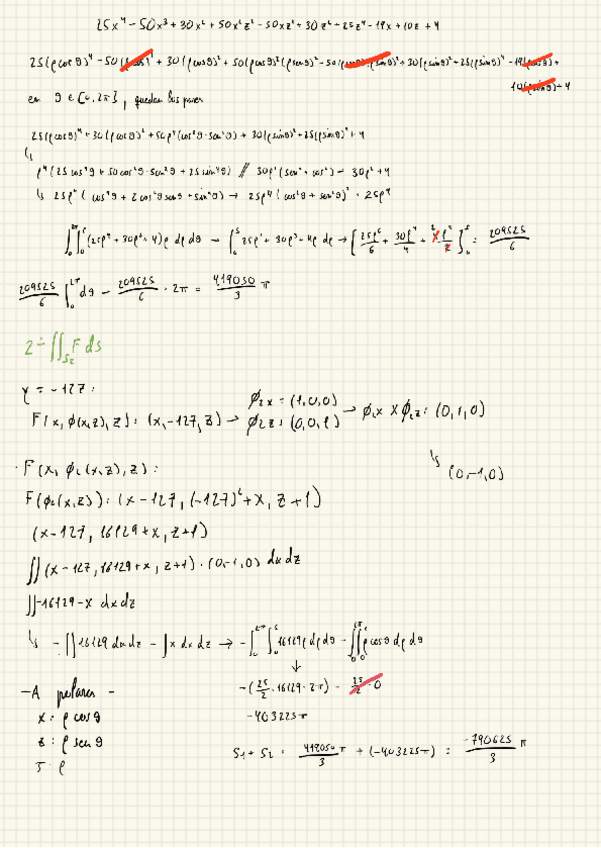 25x⁴ - 50x³ + 30x² + 50x²z² - 50xz² + 30z² + 25z⁴ - 19x + 10z + 4
25(ρcosθ)⁴ - 50(ρcosθ)³ + 30(ρcosθ)² + 50(ρcosθ)²(ρsenθ)² - 50(ρcosθ)·(ρsinθ)² + 30(ρsinθ)² + 25(ρsinθ)⁴ - 19(ρcosθ) +
10(ρsinθ) + 4
en θ ∈ [0, 2π], quedan los pares
25(ρcosθ)⁴ + 30(ρcosθ)² + 50ρ⁴(cos²θ·sen²θ) + 30(ρsinθ)² + 25(ρsinθ)⁴ + 4
↳ ρ⁴(25cos⁴θ + 50cos²θ·sen²θ + 25sin⁴θ) // 30ρ²(sen² + cos²) → 30ρ² + 4
↳ 25ρ⁴(cos⁴θ + 2cos²θ sen²θ + sin⁴θ) → 25ρ⁴(cos²θ + sen²θ)² = 25ρ⁴
∫₀²π ∫₀⁵ (25ρ⁴ + 30ρ² + 4)ρ dρ dθ → ∫₀⁵ 25ρ⁵ + 30ρ³ + 4ρ dρ → [25ρ⁶/6 + 30ρ⁴/4 + 4ρ²/2]₀⁵ = 209525/6
209525/6 ∫₀²π dθ → 209525/6 · 2π = 419050/3 π
2- ∬S₂ F ds
y = -127:
φ₂x = (1,0,0)
F(x, φ(x,z), z): (x, -127, z) → φ₂z: (0,0,1) → φ₂x X φ₂z: (0,1,0)
↳ (0,-1,0)
· F(x, φ₂(x,z), z):
F(φ₂(x,z)): (x-127, (-127)² + x, z+1)
(x-127, 16129+x, z+1)
∬(x-127, 16129+x, z+1)·(0,-1,0) dx dz
∬-16129-x dx dz
↳ -∬16129 dx dz - ∫x dx dz → -∫₀²π ∫₀⁵ 16129ρ dρ dθ - ∬ρcosθ dρ dθ
↓
-A polares -
-(25/2 · 16129 · 2π) - 25/2 · 0
x: ρ cos θ
-403225π
z: ρ sen θ
S1 + S2 = 419050/3 π + (-403225π) = -790625/3 π
J: ρ